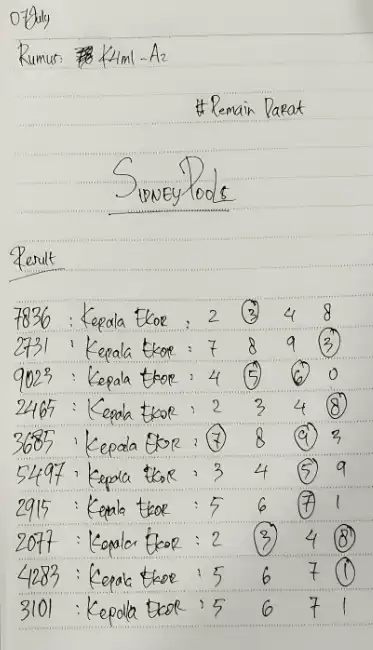 07 July
Rumus: K4ml - A2
# Pemain Darat
SidneyPools
Result
7836 : Kepala Ekor : 2 3 4 8
2731 : Kepala Ekor : 7 8 9 3
9023 : Kepala Ekor : 4 5 6 0
2465 : Kepala Ekor : 2 3 4 8
3685 : Kepala Ekor : 7 8 9 3
5497 : Kepala Ekor : 3 4 5 9
2915 : Kepala Ekor : 5 6 7 1
2077 : Kepala Ekor : 2 3 4 8
4283 : Kepala Ekor : 5 6 7 1
3101 : Kepala Ekor : 5 6 7 1